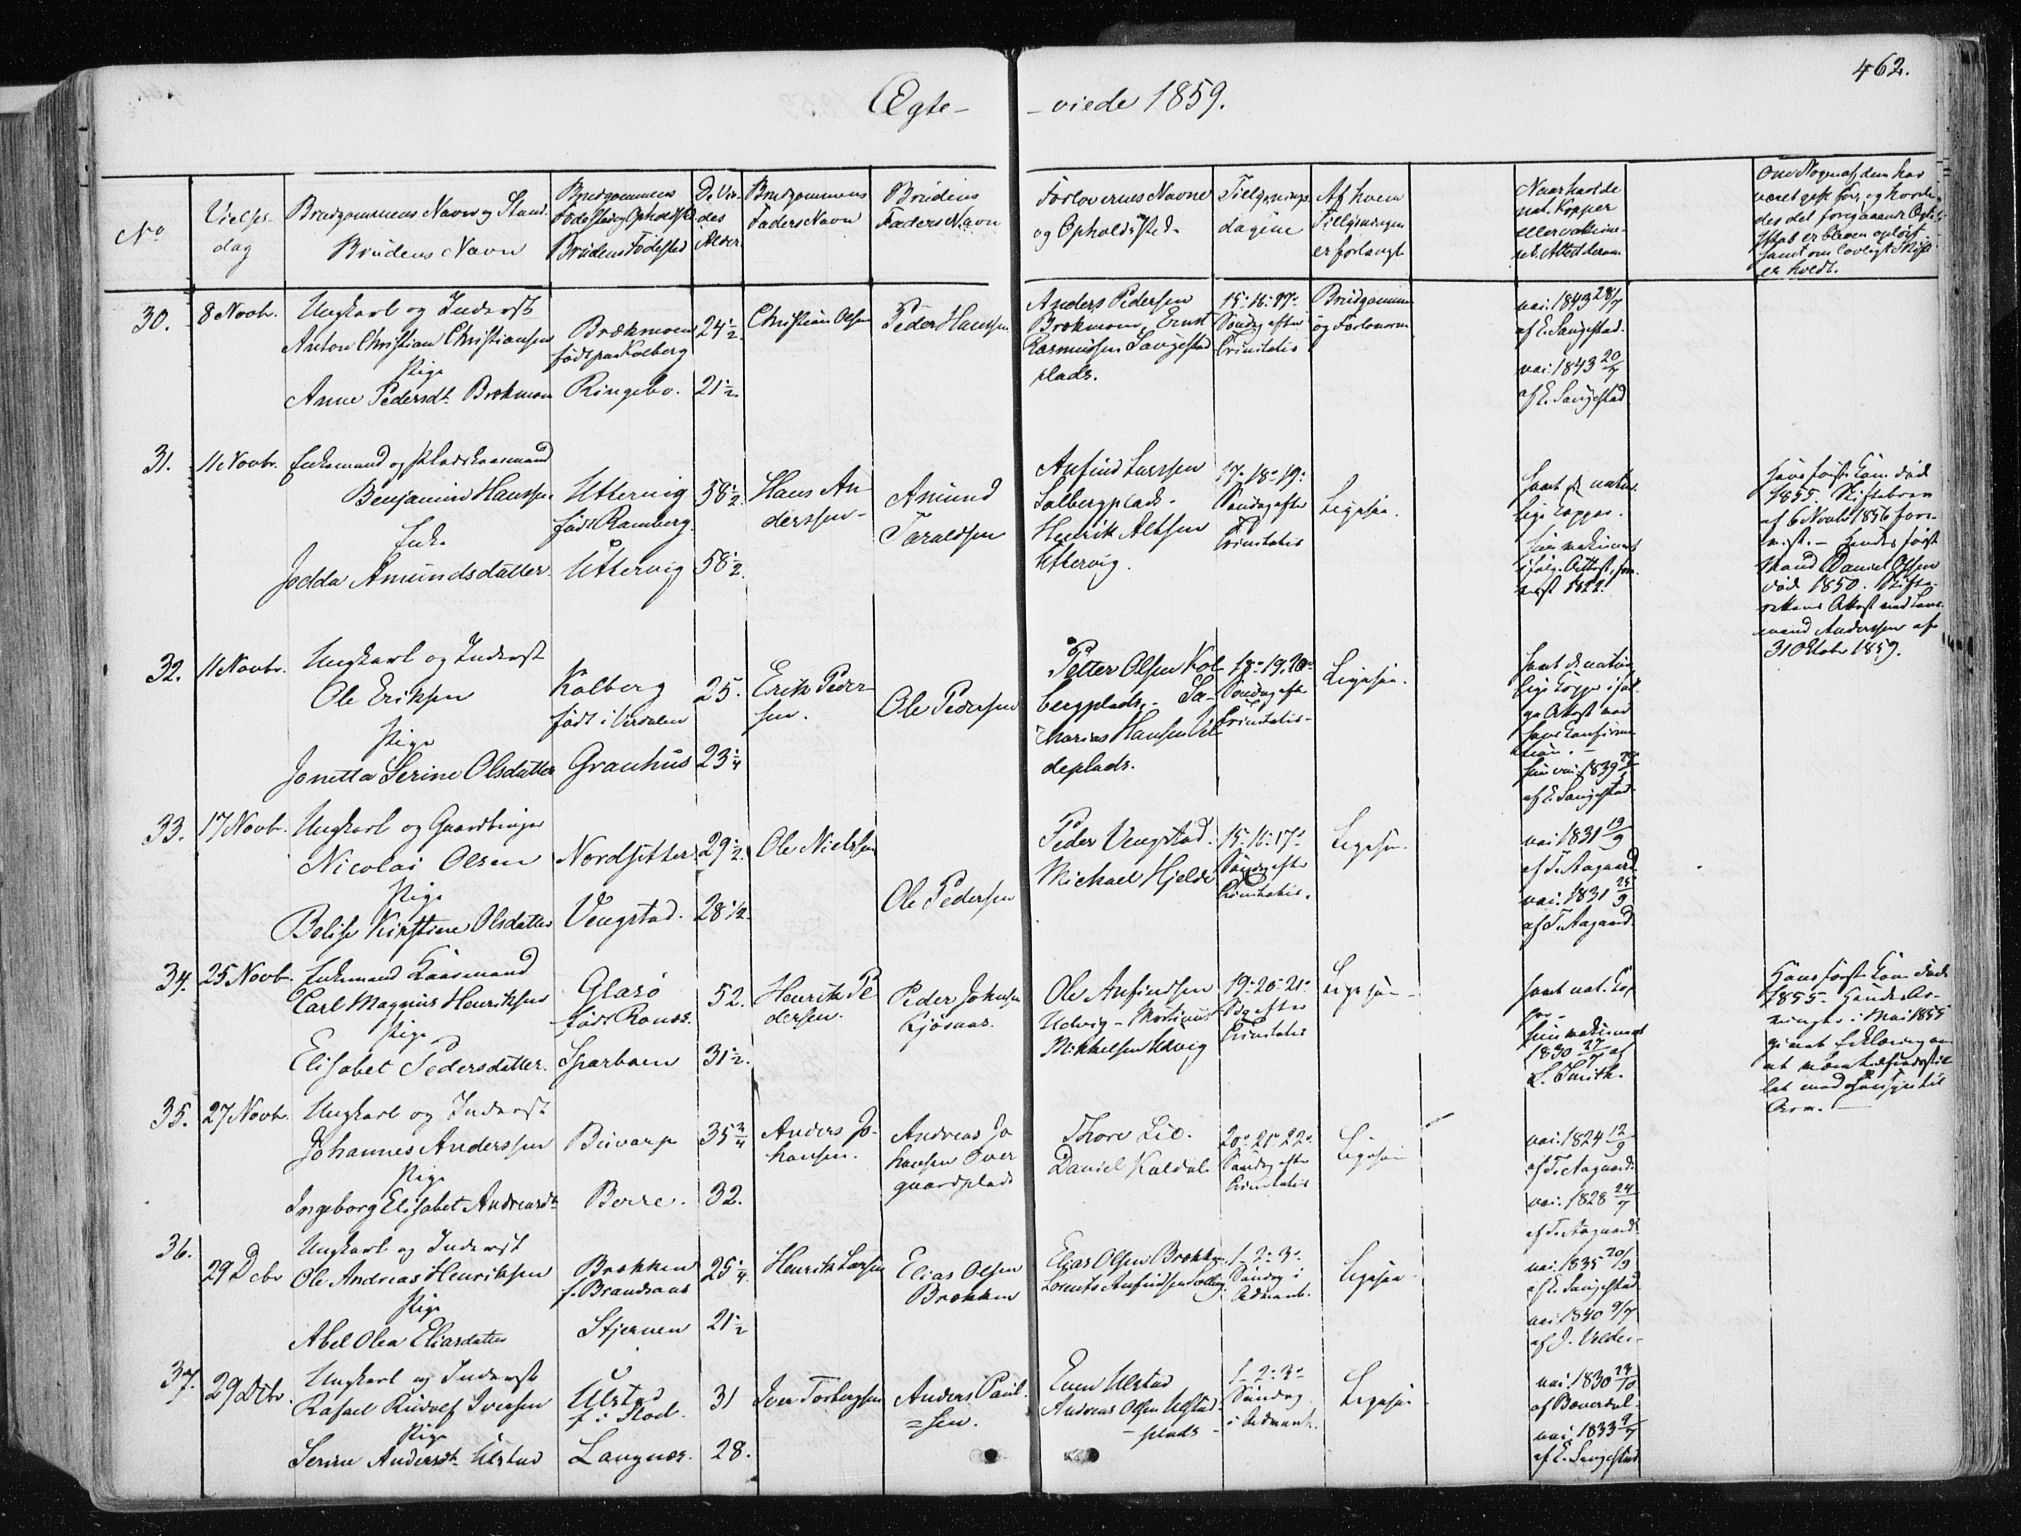 462.
Ægte- -viede 1859.
No
Vielses dag
Brudgommens Navn og Stand.
Brudens Navn
Brudgommens Fødested og Opholdssted
Brudens Fødested
De Viedes Alder
Brudgommens Faders Navn
Brudens Faders Navn
Forlovernes Navne og Opholdssted.
Tillysningsdagene
Af hvem Tillysningen er forlangt
Naar havt de nat. Kopper eller vaccineret. Attest derom
Om Nogen af dem har været gift før, og hvorledes det foregaaende Ægteskab er bleven opløst samt om lovligt Skifte er holdt.
30. 8 Novbr. Ungkarl og Inderst
Anton Christian Christiansen
Pige
Anne Pedersdt. Brækmoen
Brækmoen
født paa Kolberg
Ringebo.
24 1/2
21 1/2
Christian Olsen
Peder Hanssen
Anders Pedersen
Brækmoen, Ernst
Rasmussen Saugestad
plads.
15. 16. 17.
Søndag efter
Trinitatis
Brudgommen
og Forloverne
vai: 1843 28/7
af E. Saugestad.
vai: 1843 20/7
af E. Saugestad
31. 11 Novbr. Enkemand og Pladshuusmand
Benjamin Hanssen
Enke
Jedda Amundsdatter.
Uttervig
født Ramberg.
Uttervig
58 1/2
58 1/2
Hans Anderssen
Amund
Taraldsen
Anfind Larssen
Solbergplads.
Henrik Altsen
Uttervig.
17. 18. 19.
Søndag efter
Trinitatis
Ligesaa.
havt de naturlige Kopper.
1822.
Hans første Kone død
1855. Skiftebrev
af 6 Novbr 1856 forevist. - Hendes første
Mand Daniel Olsen
død 1850. Skifterettens Attest ved Lensmand Anderssen af
31 Oktobr 1859.
32. 11 Novbr. Ungkarl og Inderst
Ole Eriksen
Pige
Jonetta Serine Olsdatter
Kolberg
født i Verdalen
Granhus
25.
23 1/4
Erik Pedersen.
Ole Pedersen
Petter Olsen Kolbergplads,
Hansen
deplads.
18. 19. 20.
Søndag efter
Trinitatis.
Ligesaa.
havt de naturlige Kopper
hun vai: 1839
af E. Saugestad.
33. 17 Novbr. Ungkarl og Gaardbruger
Nicolai Olsen
Pige
Bolise Kirstine Olsdatter
Nordsetter.
Vengstad.
29 1/2.
28 1/2.
Ole Nielssen
Ole Pedersen
Peder Vengstad.
Michael Hjelde
15. 16. 17.
Søndag efter
Trinitatis.
Ligesaa.
vai: 1831 13/9
af T. Aagaard
vai: 1831 25/9
af T. Aagaard.
34. 25 Novbr. Enkemand Huusmand
Carl Magnus Henriksen
Pige
Elisabet Pedersdatter.
Glasø
født Ranes.
Sparboen
52.
31 1/2.
Henrik Pedersen.
Peder Johnsen
Kjøsnes.
Ole Anfindsen
Udvig - Martinus
Mikkelsen Udvig
19. 20. 21.
Sdg efter
Trinitatis
Ligesaa
havt nat. Kopper.
hun vakcineret
1830 27/7 af
L. Smith.
Hans første Kone død
1855.
35. 27 Novbr. Ungkarl og Inderst
Johannes Anderssen
Pige
Ingeborg Elisabet Andreasdt.
Buvarp
Borre.
35 3/4
32.
Anders Johansen.
Andreas Johansen Overgaardplads
Thore Lie.
Daniel Kaldal.
20. 21. 22.
Søndag efter
Trinitatis
Ligesaa
vai: 1824 12/9
af T. Aagaard.
vai: 1828 24/7
af T. Aagaard.
36. 29 Debr Ungkarl og Inderst
Ole Andreas Henriksen
Pige
Abel Olea Eliasdatter
Brækken
f. Brandsaas
Stjernen
25 1/4.
21 1/2
Henrik Larsen
Elias Olsen
Brækken
Elias Olsen Brækken
Lorents Anfindsen Solberg
1. 2. 3.
Søndag i
Advent.
Ligesaa.
vai: 1835 20/9
af E. Saugestad
vai: 1840 9/7
af J. Velde.
37. 29 Debr. Ungkarl og Inderst
Rafael Rudolf Iversen
Pige
Serine Andersdt. Ulstad
Ulstad
f. i Stod.
Langnes.
31
28.
Iver Torbergsen
Anders Paulsen.
Even Ulstad
Andreas Olsen Ulstad-
plads
1. 2. 3.
Søndag
i Advent.
Ligesaa.
vai: 1830 24/10
af Bæverdal.
vai: 1833 9/7
af E. Saugestad